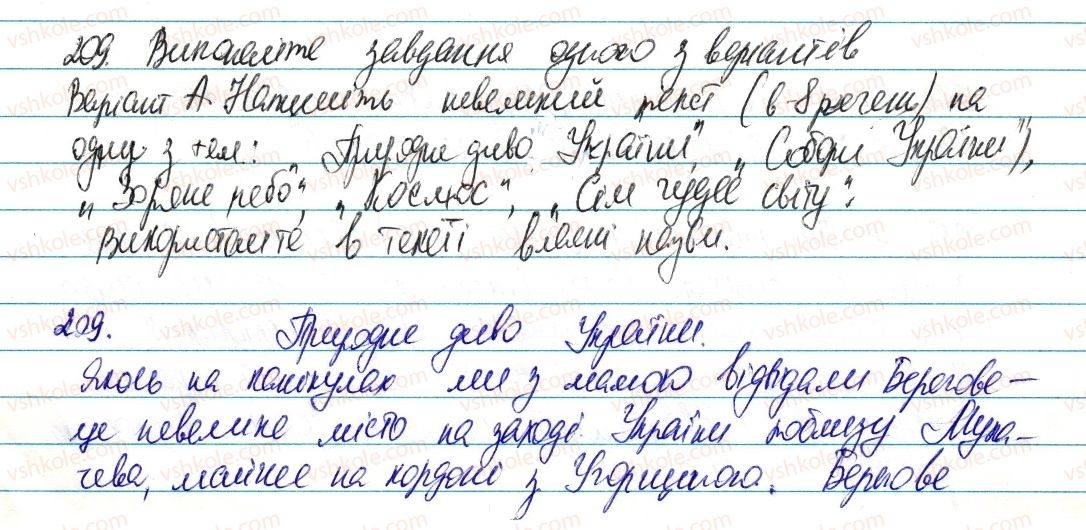 209. Виконайте завдання одного з варіантів
Варіант А. Напишіть невеликий текст (в 8 речень) на
одну з тем: „Природне диво України", „Собори України"),
„Зоряне небо", „Космос", „Сім чудес світу".
Використайте в тексті власні назви.
209. Природне диво України.
Якось на канікулах ми з мамою відвідали Берегове –
це невелике місто на заході України поблизу Мука-
чева, майже на кордоні з Угорщиною. Берегове
vshkole.com